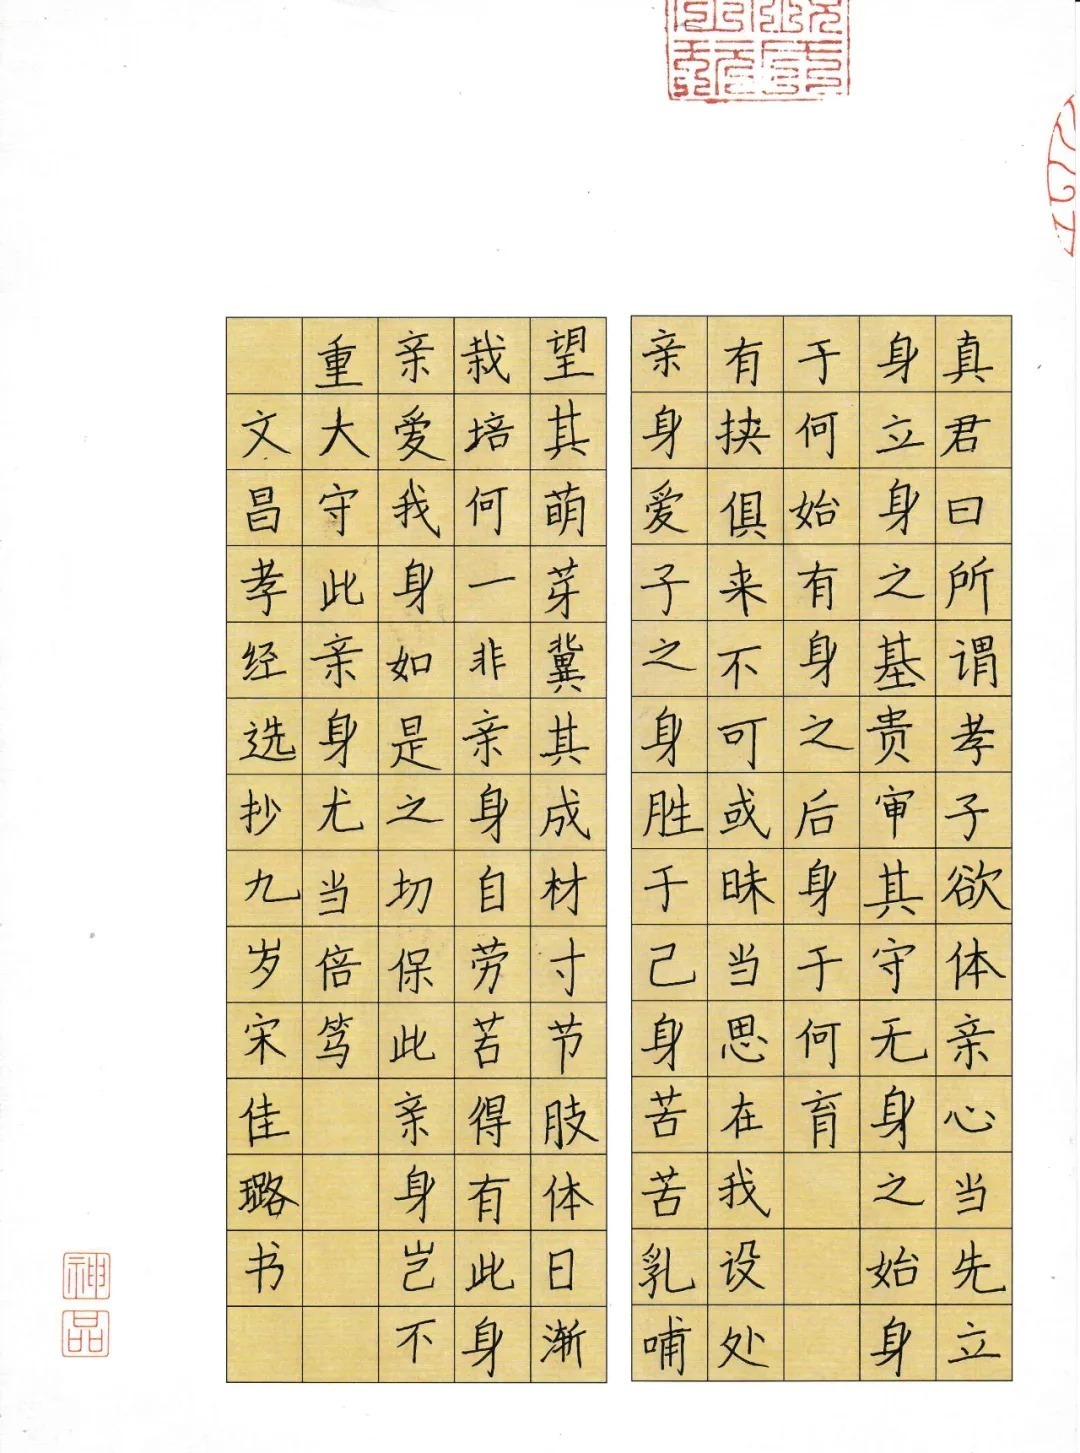 真君曰所谓孝子欲体亲心当先立
身立身之基贵审其守无身之始身
于何始有身之后身于何育
有挟俱来不可或昧当思在我设处
亲身爱子之身胜于己身苦苦乳哺
望其萌芽冀其成材寸节肢体日渐
栽培何一非亲身自劳苦得有此身
亲爱我身如是之切保此亲身岂不
重大守此亲身尤当倍笃
文昌孝经选抄九岁宋佳璐书
神品